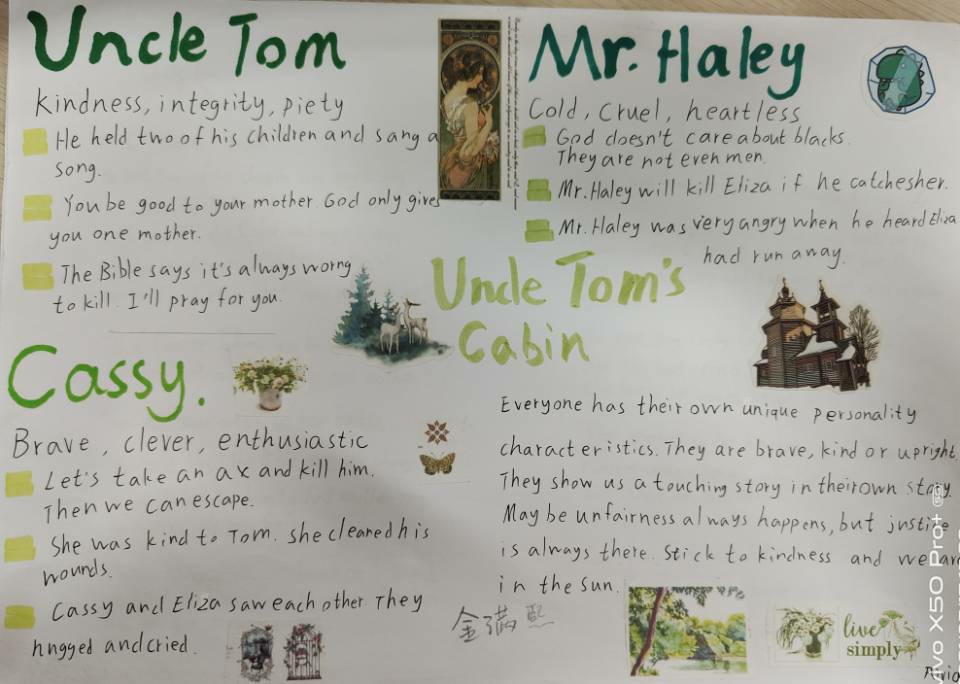 Uncle Tom
kindness, integrity, piety
He held two of his children and sang a
song.
You be good to your mother. God only gives
you one mother.
The Bible says it's always worng
to kill. I'll pray for you.
Mr. Haley
Cold, cruel, heartless
God doesn't care about blacks.
They are not even men.
Mr. Haley will kill Eliza if he catchesher.
Mr. Haley was very angry when he heard Eliza
had run away.
Uncle Tom's
Cabin
Cassy.
Brave, clever, enthusiastic
Let's take an ax and kill him.
Then we can escape.
She was kind to Tom. She cleaned his
wounds.
Cassy and Eliza saw each other They
hngged and cried.
Everyone has their own unique personality
characteristics. They are brave, kind or upright.
They show us a touching story in their own story.
May be unfairness always happens, but justice
is always there. Stick to kindness and we are
in the sun.
金满熙
live
simply
vivo X50 Pro+